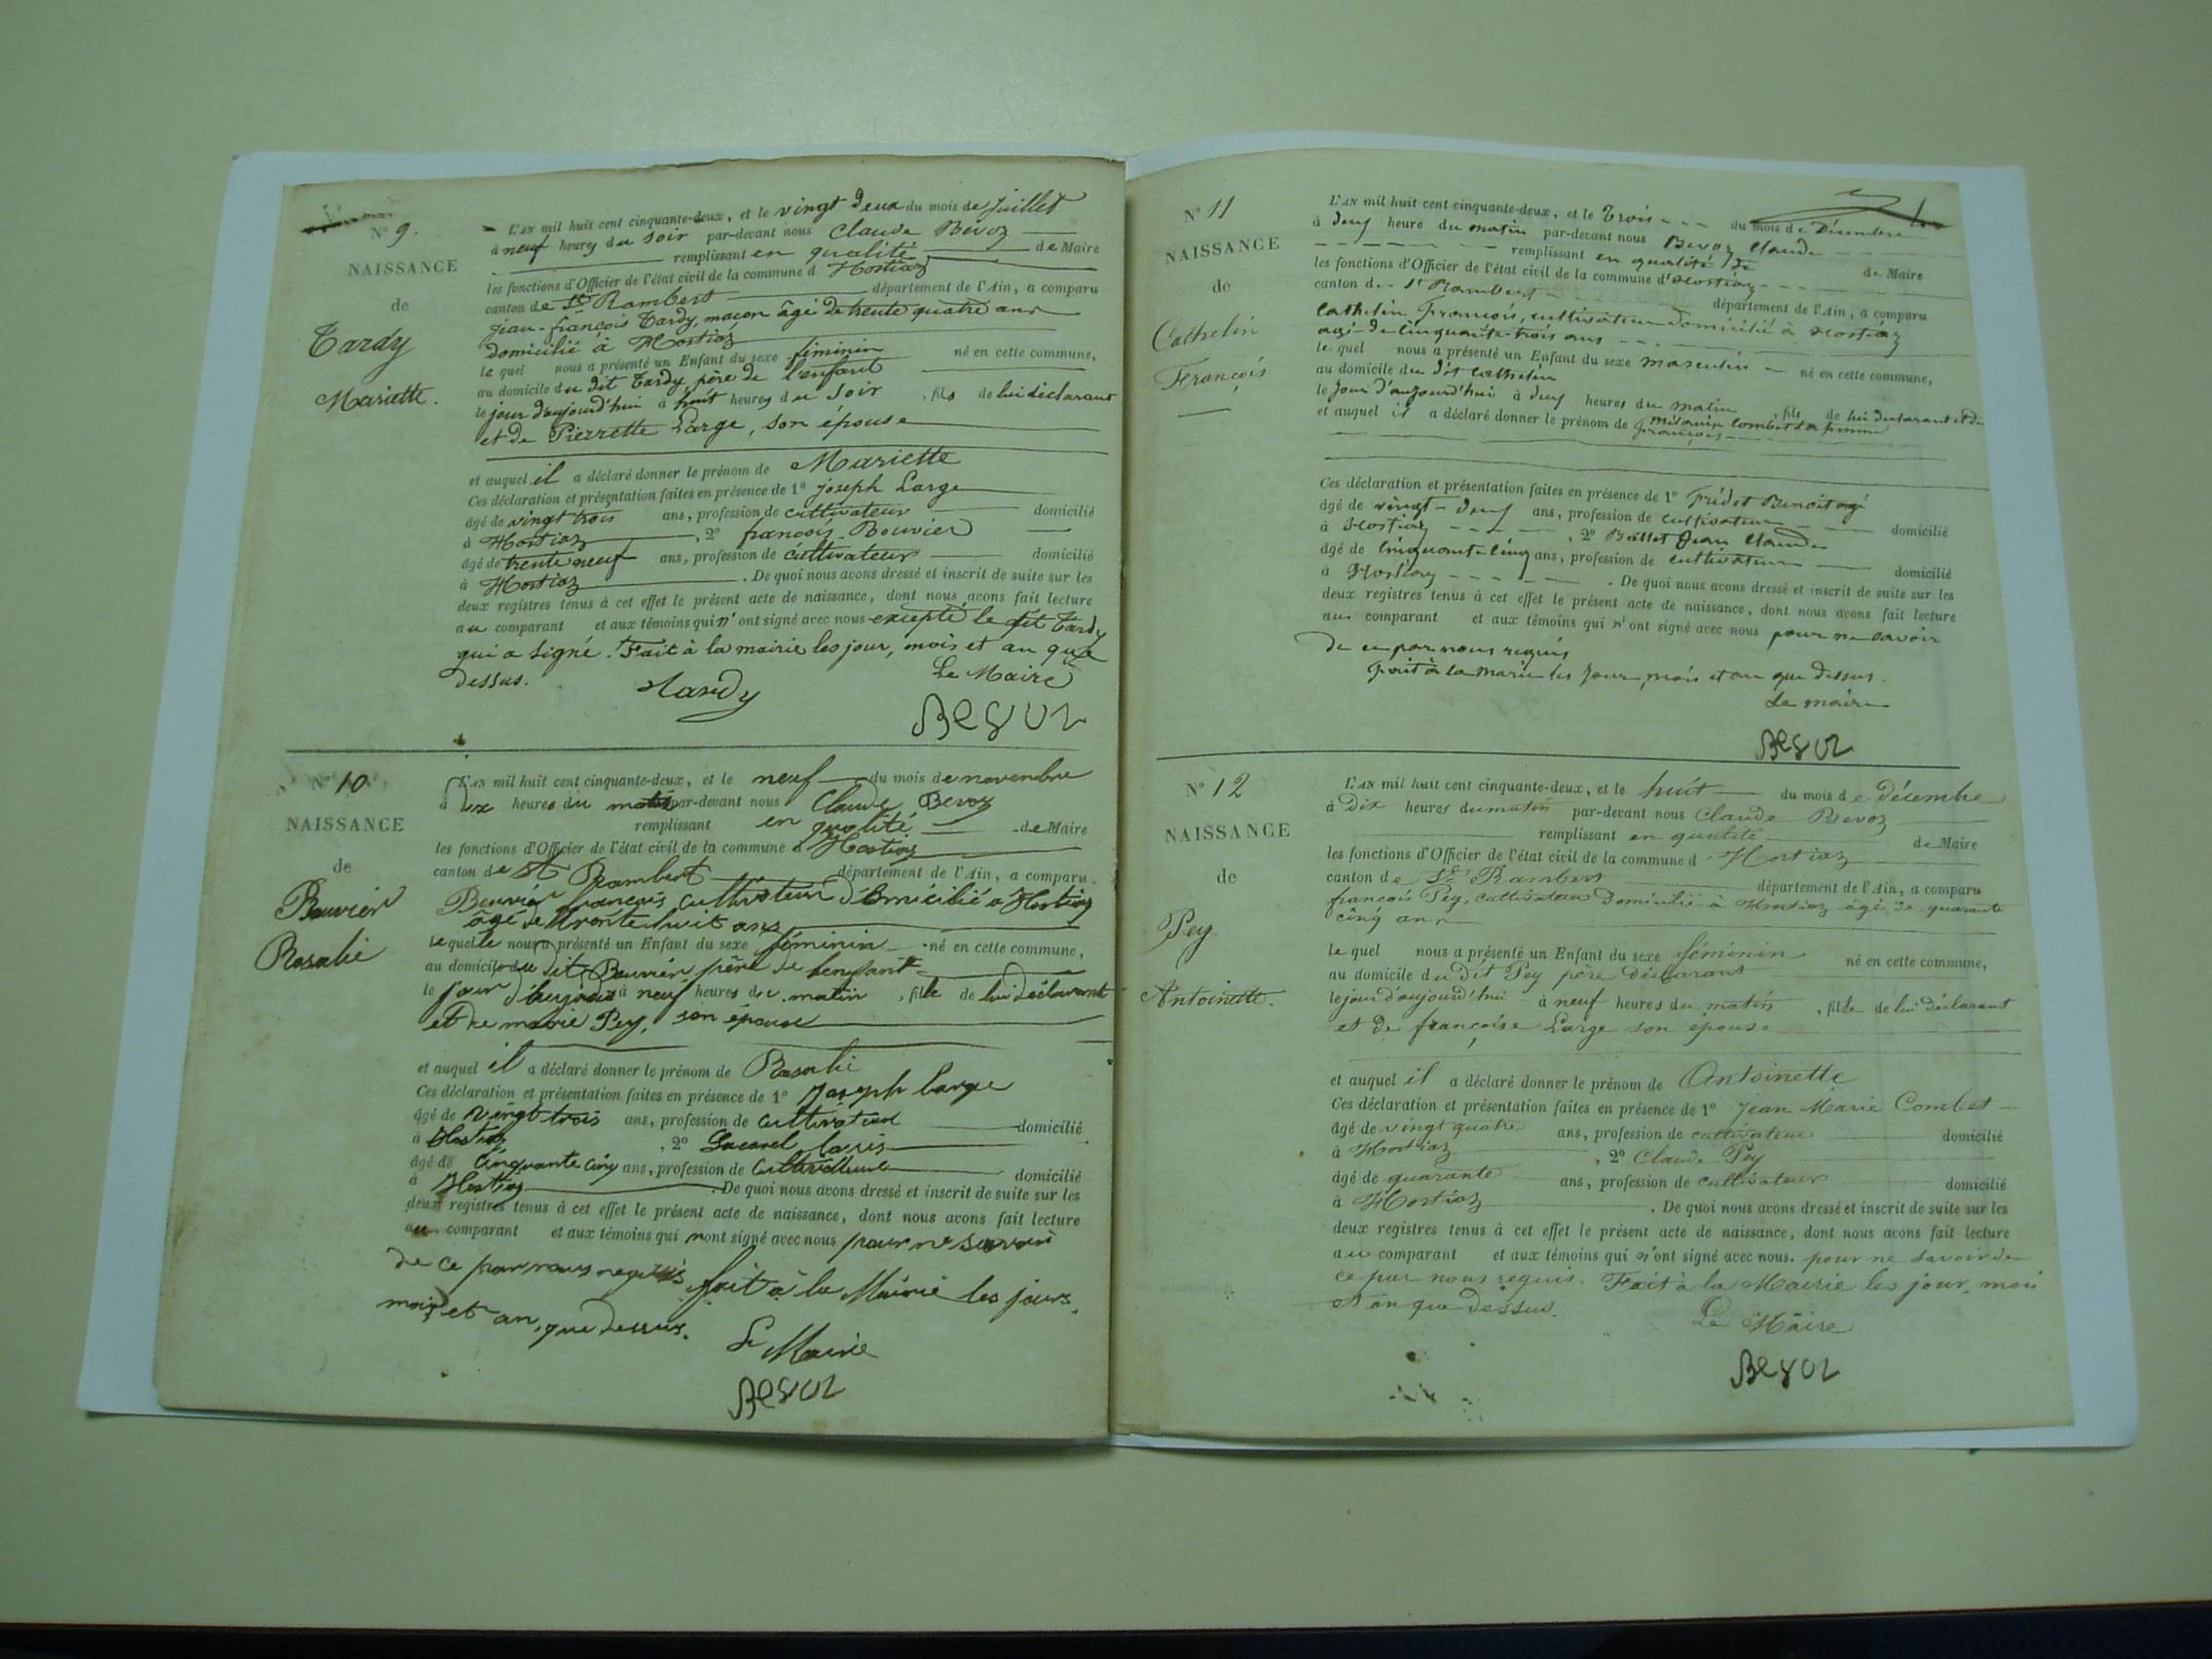 N° 9.
NAISSANCE
de
Tardy
Mariette.
L'AN mil huit cent cinquante-deux, et le vingt deux du mois de Juillet
à neuf heures du soir par-devant nous Claude Bevoz
remplissant en qualité de Maire
les fonctions d'Officier de l'état civil de la commune d Hostiaz
canton de St Rambert département de l'Ain, a comparu
Jean-françois Tardy, maçon âgé de trente quatre ans
domicilié à Hostiaz
le quel nous a présenté un Enfant du sexe féminin né en cette commune,
au domicile du dit Tardy, père de l'enfant
le jour d'aujourd'hui à huit heures du soir, fils de lui déclarant
et de Pierrette Large, son épouse
et auquel il a déclaré donner le prénom de Mariette
Ces déclaration et présentation faites en présence de 1° joseph Large
âgé de vingt trois ans, profession de cultivateur domicilié
à Hostiaz, 2° françois Bouvier
âgé de trente neuf ans, profession de cultivateur domicilié
à Hostiaz. De quoi nous avons dressé et inscrit de suite sur les
deux registres tenus à cet effet le présent acte de naissance, dont nous avons fait lecture
au comparant et aux témoins qui n'ont signé avec nous excepté le dit Tardy
qui a signé. Fait à la mairie les jour, mois et an que
dessus. Le Maire
Tardy
Bevoz
N° 10
NAISSANCE
de
Bouvier
Rosalie
L'AN mil huit cent cinquante-deux, et le neuf du mois de novembre
à dix heures du matin par-devant nous Claude Bevoz
remplissant en qualité de Maire
les fonctions d'Officier de l'état civil de la commune d Hostiaz
canton de St Rambert département de l'Ain, a comparu
Bouvier françois cultivateur domicilié à Hostiaz
âgé de trente huit ans
lequel nous a présenté un Enfant du sexe féminin né en cette commune,
au domicile du dit Bouvier père de l'enfant
le jour d'aujourd'hui à neuf heures du matin, fille de lui déclarant
et de marie Pey, son épouse
et auquel il a déclaré donner le prénom de Rosalie
Ces déclaration et présentation faites en présence de 1° Joseph Large
âgé de vingt trois ans, profession de cultivateur domicilié
à Hostiaz, 2° Louis
âgé de cinquante cinq ans, profession de cultivateur domicilié
à Hostiaz. De quoi nous avons dressé et inscrit de suite sur les
deux registres tenus à cet effet le présent acte de naissance, dont nous avons fait lecture
au comparant et aux témoins qui n'ont signé avec nous pour ne savoir
de ce par nous requis fait à la Mairie les jours,
mois et an, que dessus.
Le Maire
Bevoz
N° 11
NAISSANCE
de
Cathelin
François
L'AN mil huit cent cinquante-deux, et le Trois du mois de Décembre
à deux heure du matin par-devant nous Bevoz Claude
remplissant en qualité de de Maire
les fonctions d'Officier de l'état civil de la commune d'Hostiaz
canton de St Rambert département de l'Ain, a comparu
Cathelin François, cultivateur domicilié à Hostiaz
agé de cinquante-trois ans
le quel nous a présenté un Enfant du sexe masculin né en cette commune,
au domicile du dit Cathelin
le jour d'aujourd'hui à deux heures du matin, fils de lui déclarant et de
Mélanie Combet sa femme
et auquel il a déclaré donner le prénom de françois
Ces déclaration et présentation faites en présence de 1° Benoit agé
âgé de vingt-deux ans, profession de cultivateur domicilié
à Hostiaz, 2° Ballet Jean Claude
âgé de cinquante cinq ans, profession de cultivateur domicilié
à Hostiaz. De quoi nous avons dressé et inscrit de suite sur les
deux registres tenus à cet effet le présent acte de naissance, dont nous avons fait lecture
au comparant et aux témoins qui n'ont signé avec nous pour ne savoir
de ce par nous requis
fait à la mairie les jour, mois et an que dessus.
Le maire
Bevoz
N° 12
NAISSANCE
de
Pey
Antoinette.
L'AN mil huit cent cinquante-deux, et le huit du mois de décembre
à dix heures du matin par-devant nous Claude Bevoz
remplissant en qualité de Maire
les fonctions d'Officier de l'état civil de la commune d Hostiaz
canton de St Rambert département de l'Ain, a comparu
françois Pey, cultivateur domicilié à Hostiaz âgé de quarante
cinq ans
le quel nous a présenté un Enfant du sexe féminin né en cette commune,
au domicile du dit Pey père déclarant
le jour d'aujourd'hui à neuf heures du matin, fille de lui déclarant
et de françoise Large son épouse
et auquel il a déclaré donner le prénom de Antoinette
Ces déclaration et présentation faites en présence de 1° Jean Marie Combet
âgé de vingt quatre ans, profession de cultivateur domicilié
à Hostiaz, 2° Claude Pey
âgé de quarante ans, profession de cultivateur domicilié
à Hostiaz. De quoi nous avons dressé et inscrit de suite sur les
deux registres tenus à cet effet le présent acte de naissance, dont nous avons fait lecture
au comparant et aux témoins qui n'ont signé avec nous. pour ne savoir de
ce par nous requis. Fait à la Mairie les jour, mois
et an que dessus.
Le Maire
Bevoz